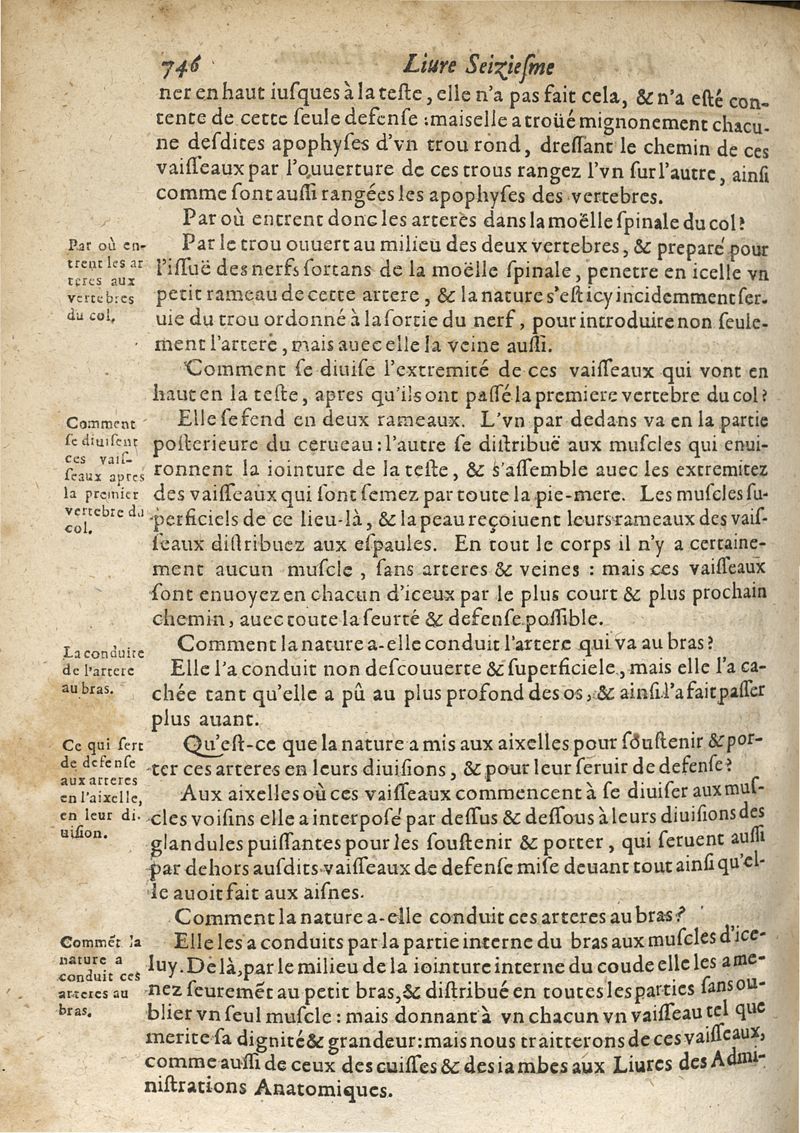 746 Liure Seiziesme
ner en haut iusques à la teste, elle n'a pas fait cela, & n'a esté con-
tente de cette seule defense : mais elle a troüé mignonement chacu-
ne desdites apophyses d'vn trou rond, dressant le chemin de ces
vaisseaux par l'ouuerture de ces trous rangez l'vn sur l'autre, ainsi
comme sont aussi rangées les apophyses des vertebres.
Par où entrent donc les arteres dans la moëlle spinale du col?
Par où en-
trent les ar
teres aux
vertebres
du col.
Par le trou ouuert au milieu des deux vertebres, & preparé pour
l'issuë des nerfs sortans de la moëlle spinale, penetre en icelle vn
petit rameau de cette artere, & la nature s'est icy incidemment ser-
uie du trou ordonné à la sortie du nerf, pour introduire non seule-
ment l'artere, mais auec elle la veine aussi.
Comment se diuise l'extremité de ces vaisseaux qui vont en
haut en la teste, apres qu'ils ont passé la premiere vertebre du col?
Comment
se diuisent
ces vais-
seaux apres
la premier
vertebre du
col.
Elle se fend en deux rameaux. L'vn par dedans va en la partie
posterieure du cerueau : l'autre se distribuë aux muscles qui enui-
ronnent la iointure de la teste, & s'assemble auec les extremitez
des vaisseaux qui sont semez par toute la pie-mere. Les muscles su-
perficiels de ce lieu-là, & la peau reçoiuent leurs rameaux des vais-
seaux distribuez aux espaules. En tout le corps il n'y a certaine-
ment aucun muscle, sans arteres & veines : mais ces vaisseaux
sont enuoyez en chacun d'iceux par le plus court & plus prochain
chemin, auec toute la seurté & defense possible.
Comment la nature a-elle conduit l'artere qui va au bras?
La conduite
de l'artere
au bras.
Elle l'a conduit non descouuerte & superficiele, mais elle l'a ca-
chée tant qu'elle a pû au plus profond des os, & ainsi l'a fait passer
plus auant.
Ce qui sert
de defense
aux arteres
en l'aixelle,
en leur di-
uision.
Qu'est-ce que la nature a mis aux aixelles pour soustenir & por-
ter ces arteres en leurs diuisions, & pour leur seruir de defense?
Aux aixelles où ces vaisseaux commencent à se diuiser aux mus-
cles voisins elle a interposé par dessus & dessous à leurs diuisions des
glandules puissantes pour les soustenir & porter, qui seruent aussi
par dehors ausdits vaisseaux de defense mise deuant tout ainsi qu'el-
le auoit fait aux aisnes.
Comment la nature a-elle conduit ces arteres au bras?
Commẽt la
nature a
conduit ces
arteres au
bras.
Elle les a conduits par la partie interne du bras aux muscles d'ice-
luy. De là, par le milieu de la iointure interne du coude elle les ame-
nez seuremẽt au petit bras, & distribué en toutes les parties sans ou-
blier vn seul muscle : mais donnant à vn chacun vn vaisseau tel que
merite sa dignité & grandeur : mais nous traitterons de ces vaisseaux,
comme aussi de ceux des cuisses & des iambes aux Liures des Admi-
nistrations Anatomiques.